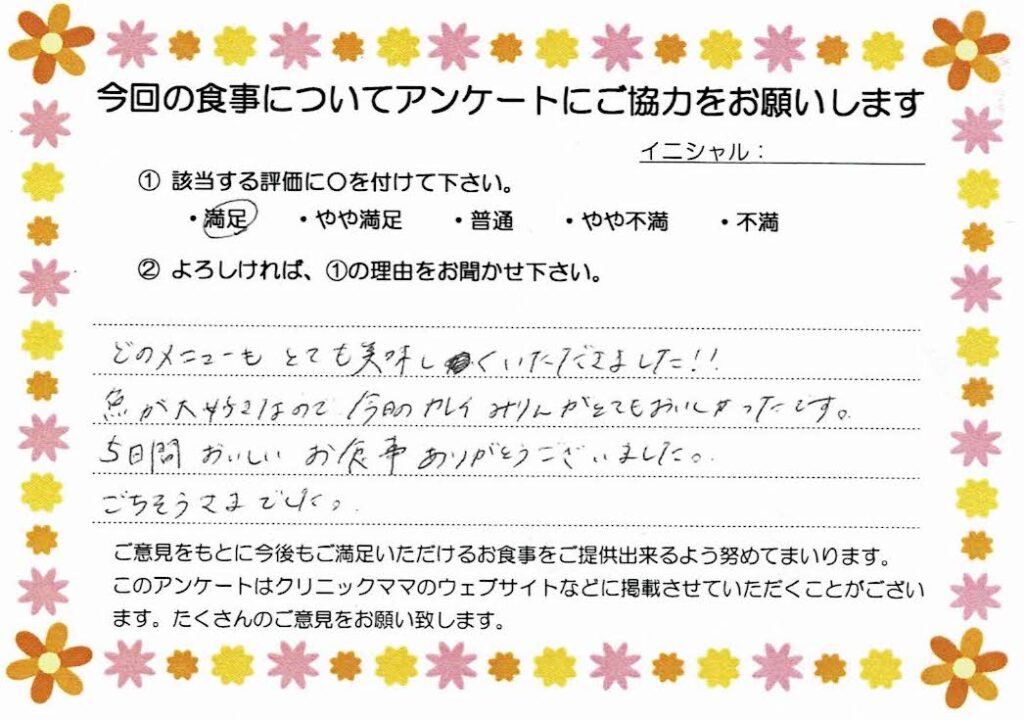 今回の食事についてアンケートにご協力をお願いします
イニシャル：
① 該当する評価に〇を付けて下さい。
・満足 ・やや満足 ・普通 ・やや不満 ・不満
② よろしければ、①の理由をお聞かせ下さい。
どのメニューも とても美味しくいただきました!!
魚が大好きなので 今日のカレイみりんがとてもおいしかったです。
5日間 おいしい お食事 ありがとうございました。
ごちそうさまでした。
ご意見をもとに今後もご満足いただけるお食事をご提供出来るよう努めてまいります。
このアンケートはクリニックママのウェブサイトなどに掲載させていただくことがござい
ます。たくさんのご意見をお願い致します。